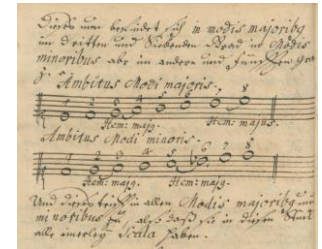 Dieses nun befindet sich in modis majoribg
im dritten und Siebenden Grad in Modis
minoribus aber im andern und fünfften Grad
z.
Ambitus Modi majoris.
1 2 3 4 5 6 7 8
Hem: majg. Hem: majus.
Ambitus Modi minoris.
1 2 3 4 5 6 7 8
Hem: majg. Hem: majg.
Und dieses trifft in allen Modis majoribg und
minoribus zu, also daß sie in diesen Stück
alle einerley Scala haben.